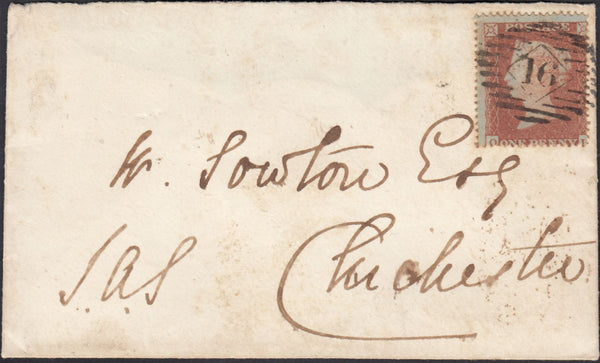 POSTAGE
16
ONE PENNY
W. Sowton Esq
S.A.S Chichester